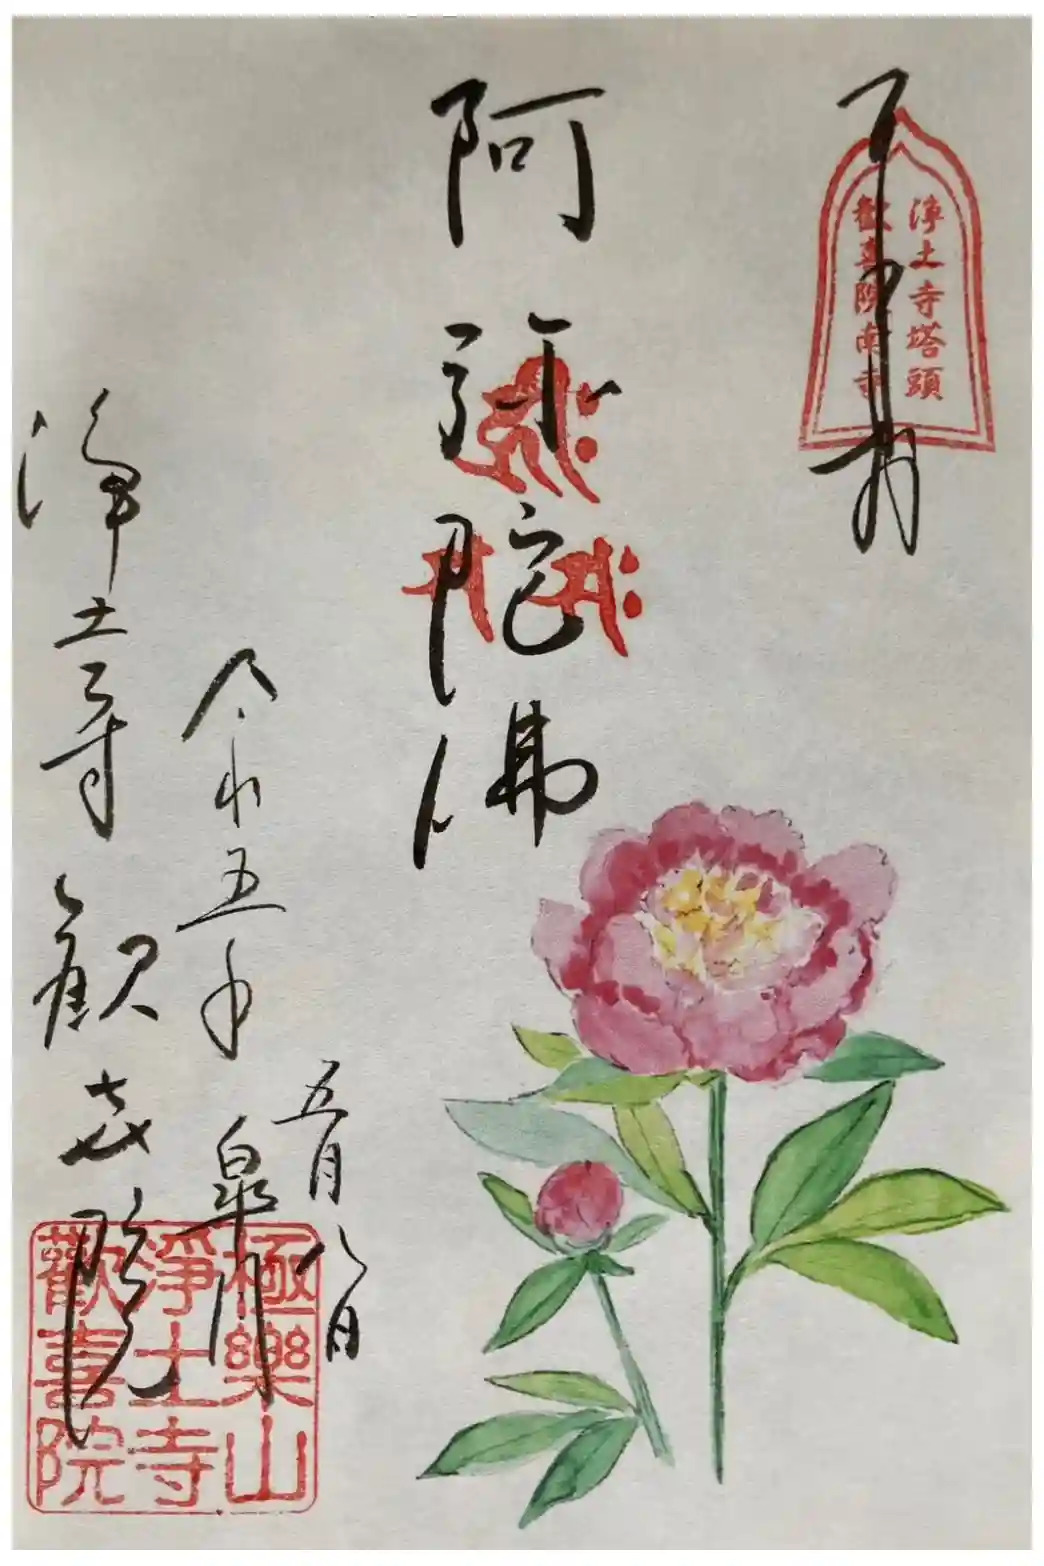 奉拝
浄土寺塔頭
歡喜院南寺
阿弥陀佛
五月八日
令和五年
皐月
浄土寺歓喜院
極樂山
淨土寺
歡喜院